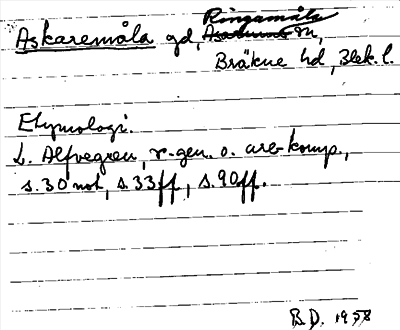 Askaremåla gd, Ringamåla sn,
Bräkne hd, Blek. l.
Etymologi.
L. Alfvegren, r-gen. o. are-komp.,
s. 30 not, s. 33ff, s. 90ff.
B.D. 1958